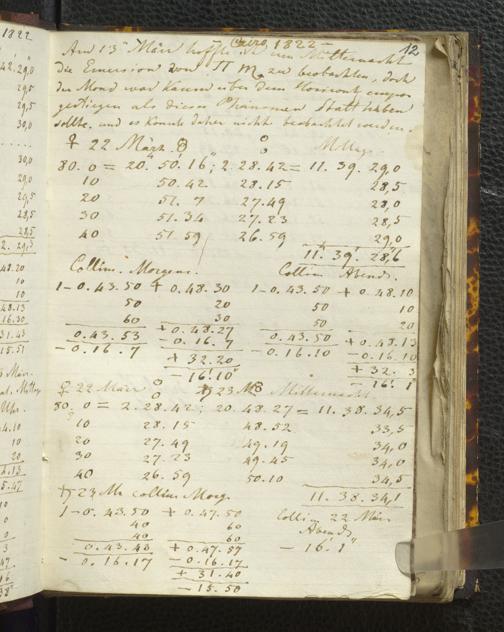 1822
März 1822
12
Am 13 März hoffte ich um Mitternacht
die Emersion von π ♏ zu beobachten, doch
der Mond war kaum über dem Horizont empor
gestiegen als dieses Phänomen Statt haben
sollte, und es konnte daher nicht beobachtet werden.
♀ 22 März Mittag
80. 0 = 20. 50. 16; 2. 28. 42 = 11. 39. 29,0
10 50.42 28.15 28,5
20 51. 7 27.49 28,0
30 51.34 27.23 28,5
40 51.59 26.59 29,0
11. 39. 28,6
Collim. Morgens. Collim Abends.
1-0.43.50 + 0.48.30 1-0.43.50 + 0.48.10
50 20 50 10
60 30 50 20
0.43.53 + 0.48.27 0.43.50 + 0.48.13
- 0.16.7 - 0.16.7 - 0.16.10 - 0.16.10
+ 32.20 + 32. 3
- 16.10 - 16. 1
♀ 22 März ♄ 23 M Mitternacht
80. 0 = 2. 28. 42; 20. 48. 27 = 11. 38. 34,5
10 28.15 48.52 33,5
20 27.49 49.19 34,0
30 27.23 49.45 34,0
40 26.59 50.10 34,5
11. 38. 34,1
♄ 23 Mz collim. Morg.
1-0.43.50 + 0.47.50 Colli. 22 März
40 60 Abends
40 60 - 16. 1"
0.43.43 + 0.47.57
- 0.16.17 - 0.16.17
+ 31.40
- 15.50